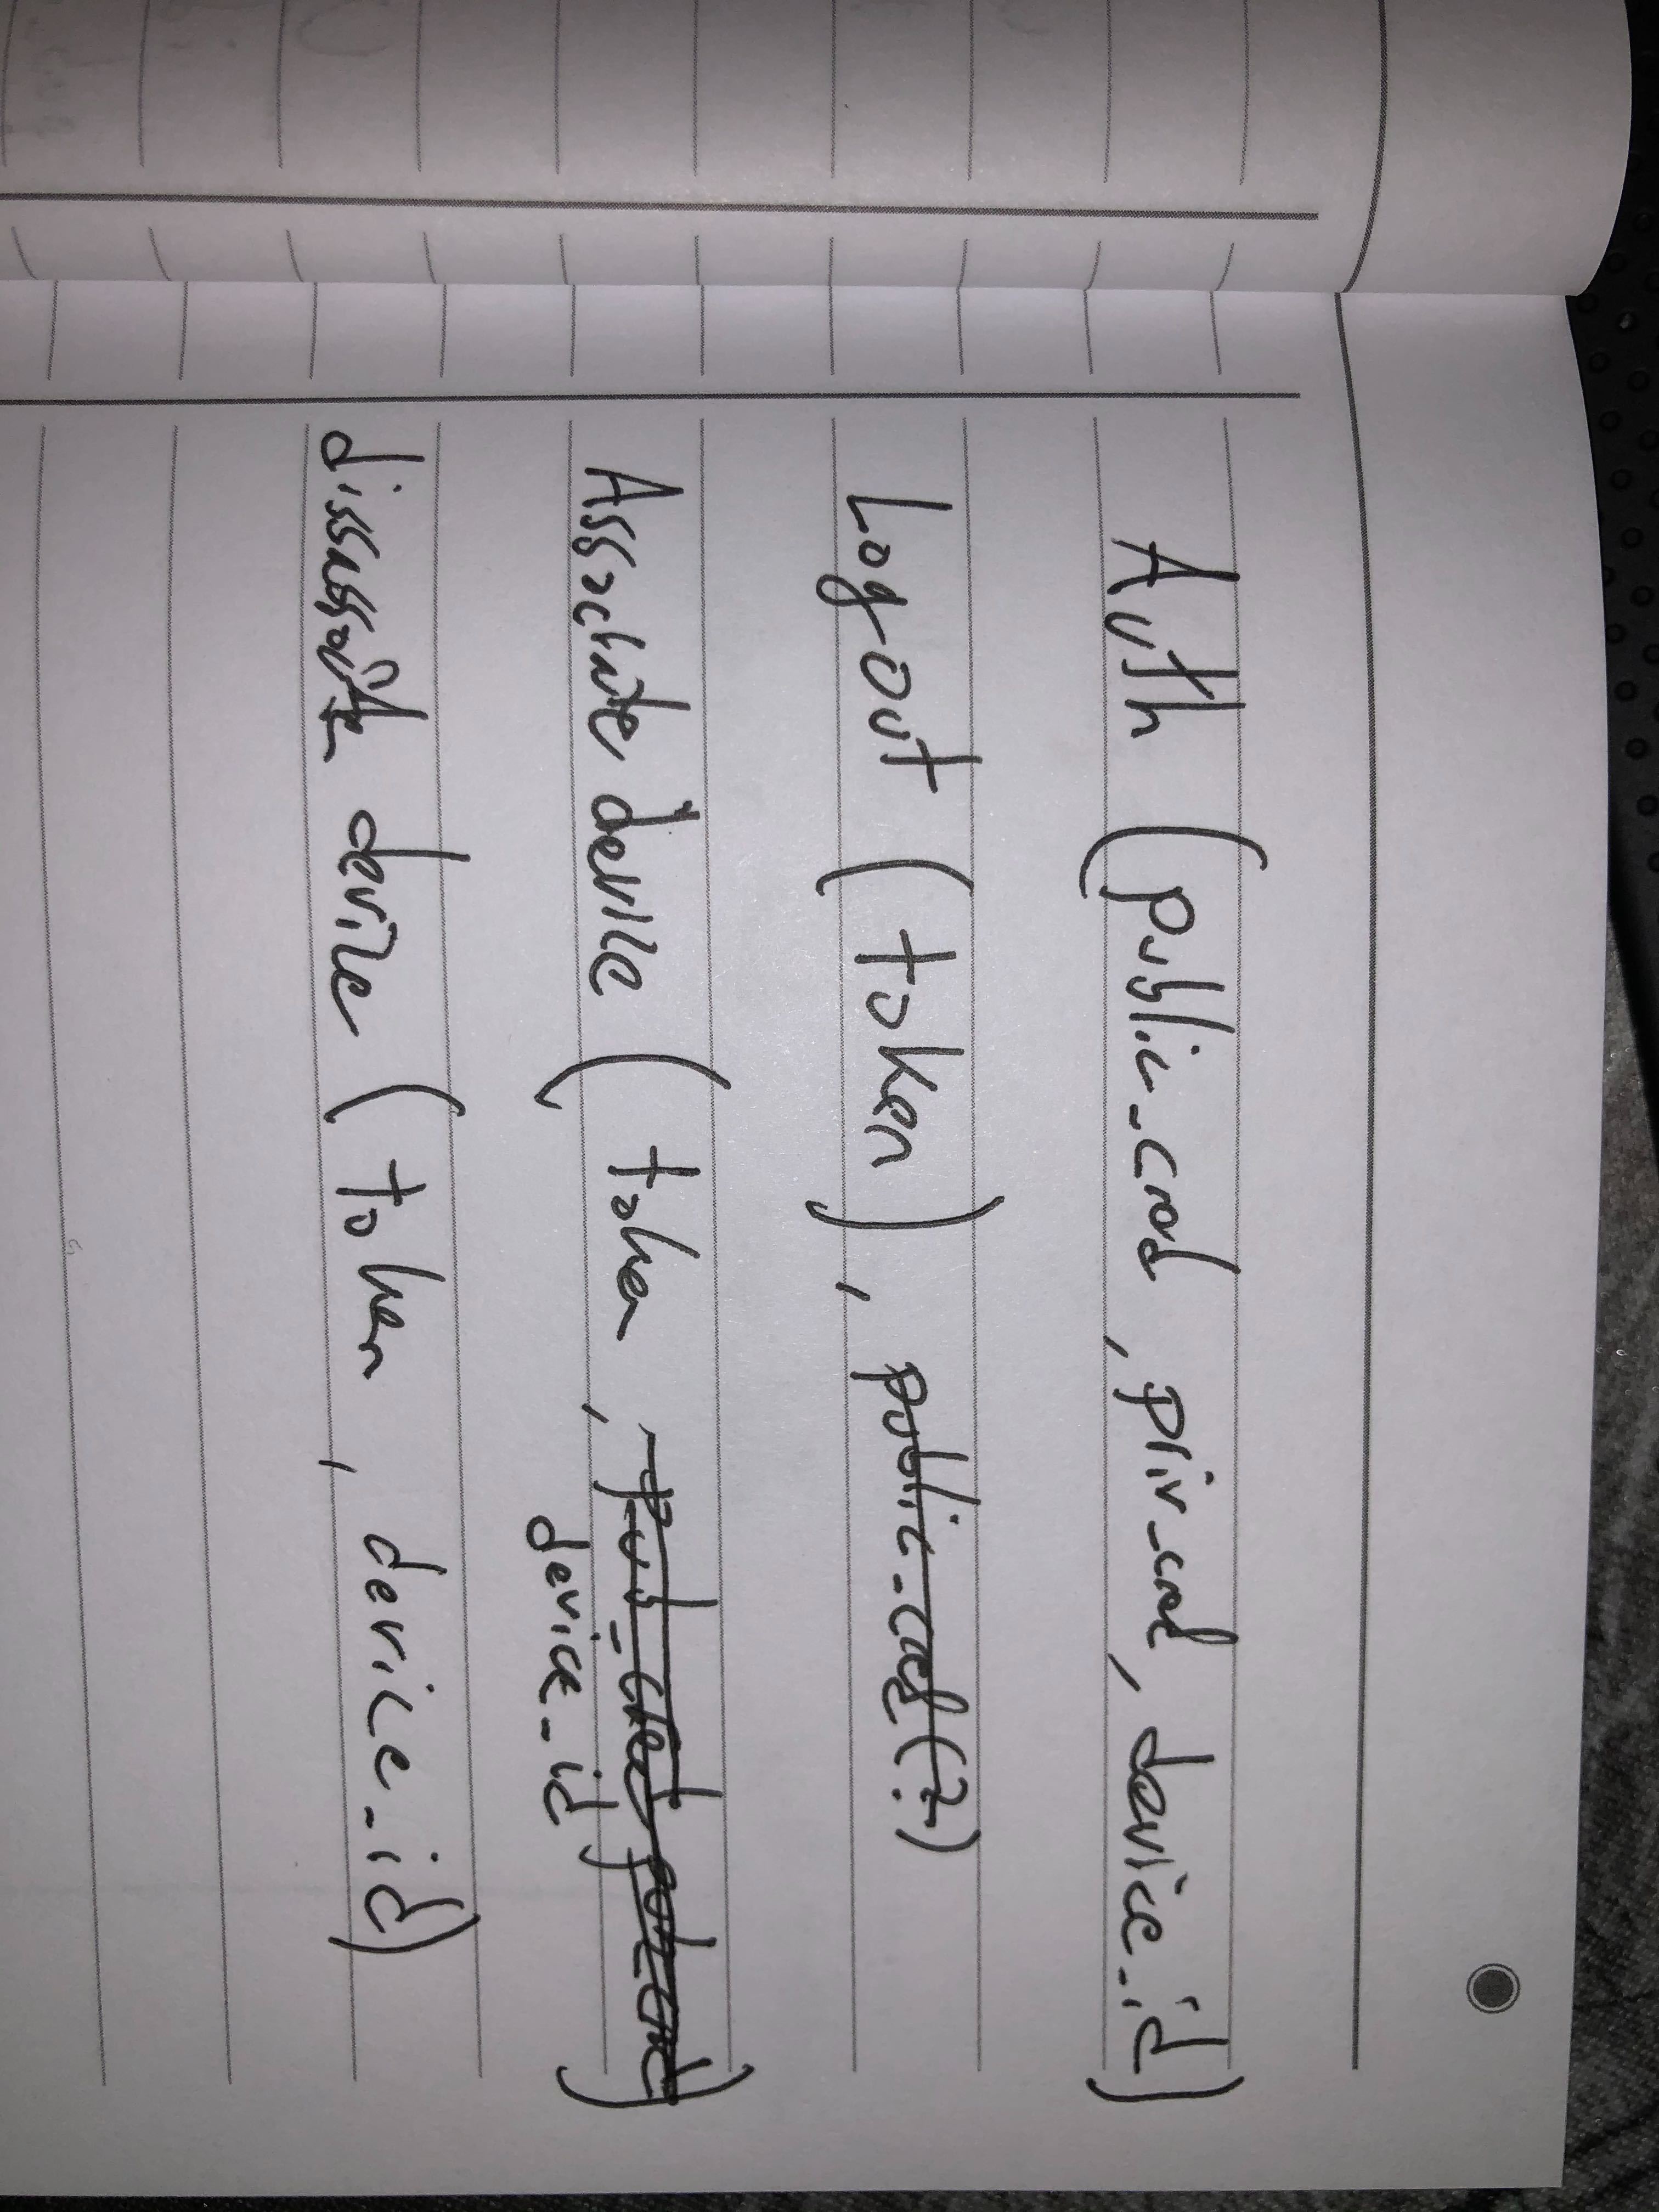 Auth (public_cred, priv_cred, device_id)
Logout (token), public_cred(?)
Associate device (token, pub_cred,
device_id)
dissassoite device (token, device_id)